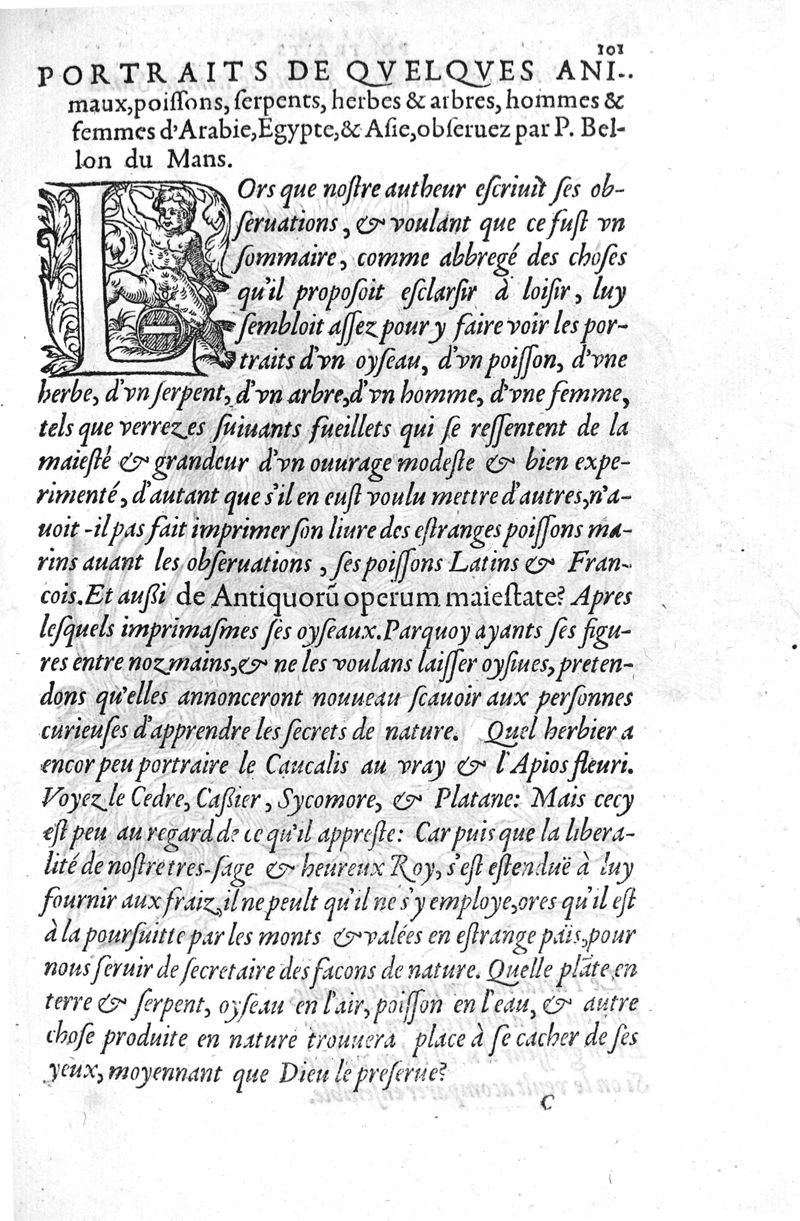 101
PORTRAITS DE QVELQVES ANI-
maux,poiſſons, ſerpents, herbes & arbres, hommes &
femmes d'Arabie, Egypte, & Aſie, obſeruez par P. Bel-
lon du Mans.
LOrs que noſtre autheur eſcriuit ſes ob-
ſeruations, & voulant que ce fuſt vn
ſommaire, comme abbregé des choſes
qu'il propoſoit eſclarſir à loiſir, luy
ſembloit aſſez pour y faire voir les por-
traits d'vn oyſeau, d'vn poiſſon, d'vne
herbe, d'vn ſerpent, d'vn arbre, d'vn homme, d'vne femme,
tels que verrez es ſuiuants fueillets qui ſe reſſentent de la
maieſté & grandeur d'vn ouurage modeſte & bien expe-
rimenté, d'autant que s'il en euſt voulu mettre d'autres, n'a-
uoit-il pas fait imprimer ſon liure des eſtranges poiſſons ma-
rins auant les obſeruations, ſes poiſſons Latins & Fran-
cois. Et außi de Antiquorũ operum maieſtate? Apres
leſquels imprimaſmes ſes oyſeaux. Parquoy ayants ſes figu-
res entre noz mains, & ne les voulans laiſſer oyſiues, preten-
dons qu'elles annonceront nouueau ſcauoir aux perſonnes
curieuſes d'apprendre les ſecrets de nature. Quel herbier a
encor peu portraire le Caucalis au vray & l'Apios fleuri.
Voyez le Cedre, Caßier, Sycomore, & Platane: Mais cecy
eſt peu au regard de ce qu'il appreſte: Car puis que la libera-
lité de noſtre tres-ſage & heureux Roy, s'eſt eſtenduë à luy
fournir aux fraiz, il ne peult qu'il ne s'y employe, ores qu'il eſt
à la pourſuitte par les monts & valées en eſtrange païs, pour
nous ſeruir de ſecretaire des facons de nature. Quelle plãte en
terre & ſerpent, oyſeau en l'air, poiſſon en l'eau, & autre
choſe produite en nature trouuera place à ſe cacher de ſes
yeux, moyennant que Dieu le preſerue?
C